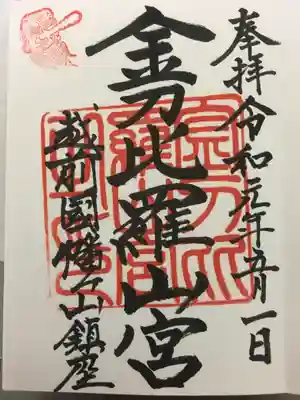 奉拝 令和元年五月一日
金刀比羅山宮
越前國幡山鎮座